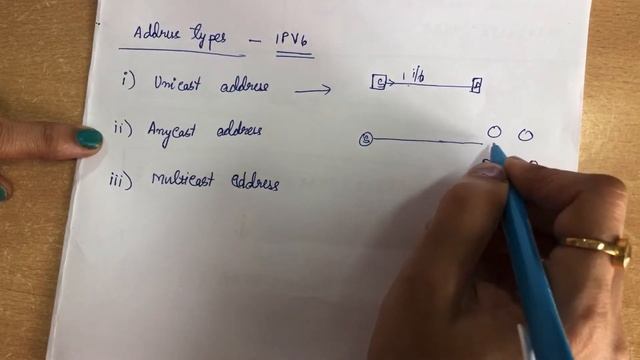 Address Types - IPV6
i) Unicast address → S 1 i/f
ii) Anycast address S
iii) Multicast address